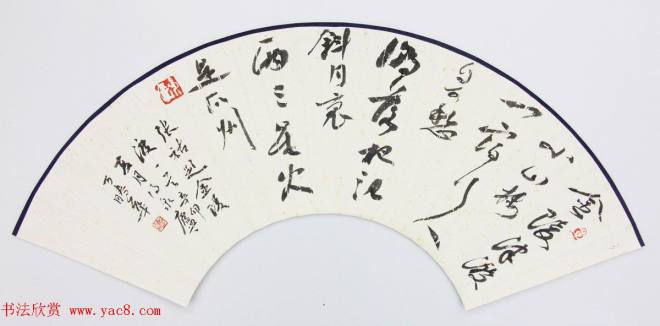 金陵津渡
小山楼
一宿行人
自可愁
潮落夜江
斜月里
两三星火
是瓜州
张祜题金陵
渡一首
五月
书法欣赏 www.yac8.com